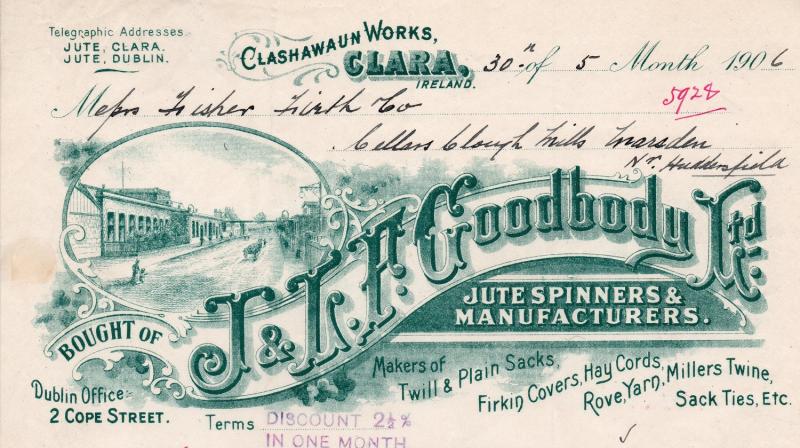 Telegraphic Addresses
JUTE, CLARA.
JUTE, DUBLIN.
CLASHAWAUN WORKS,
CLARA,
IRELAND.
30th of 5 Month 1906
5928
Messrs Fisher Firth & Co
Cellars Clough Mills Marsden
Nr. Huddersfield
BOUGHT OF
J & L.F. Goodbody Ltd.
JUTE SPINNERS &
MANUFACTURERS.
Makers of
Twill & Plain Sacks,
Firkin Covers, Hay Cords,
Rove, Yarn, Millers Twine,
Sack Ties, Etc.
Dublin Office:-
2 COPE STREET.
Terms DISCOUNT 2½%
IN ONE MONTH